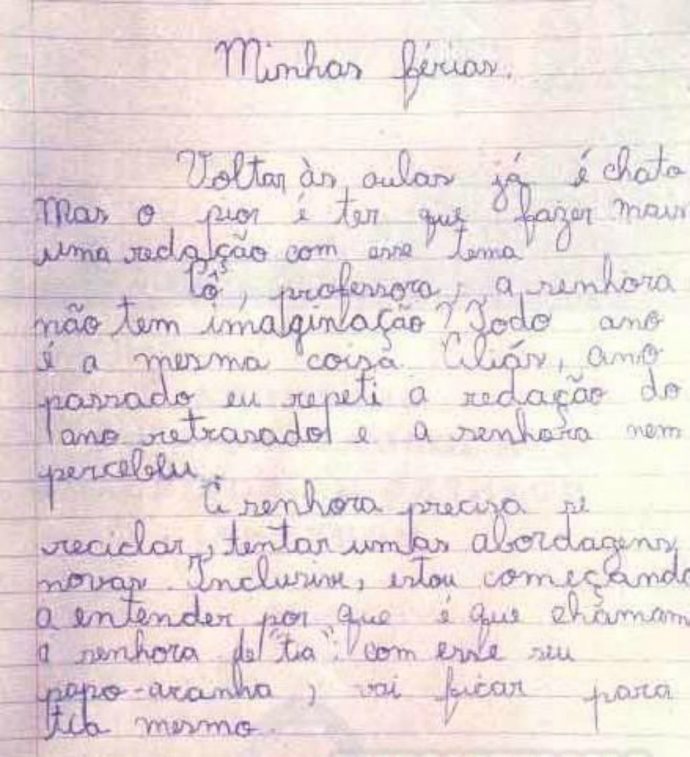 Minhas férias.
Voltar às aulas já é chato
Mas o pior é ter que fazer mais
uma redação com esse tema
Pô, professora, a senhora
não tem imaginação? Todo ano
é a mesma coisa. Aliás, ano
passado eu repeti a redação do
ano retrasado e a senhora nem
percebeu.
A senhora precisa se
reciclar, tentar umas abordagens
novas. Inclusive, estou começando
a entender por que é que chamam
a senhora de "tia". Com esse seu
papo-aranha, vai ficar para
tia mesmo.